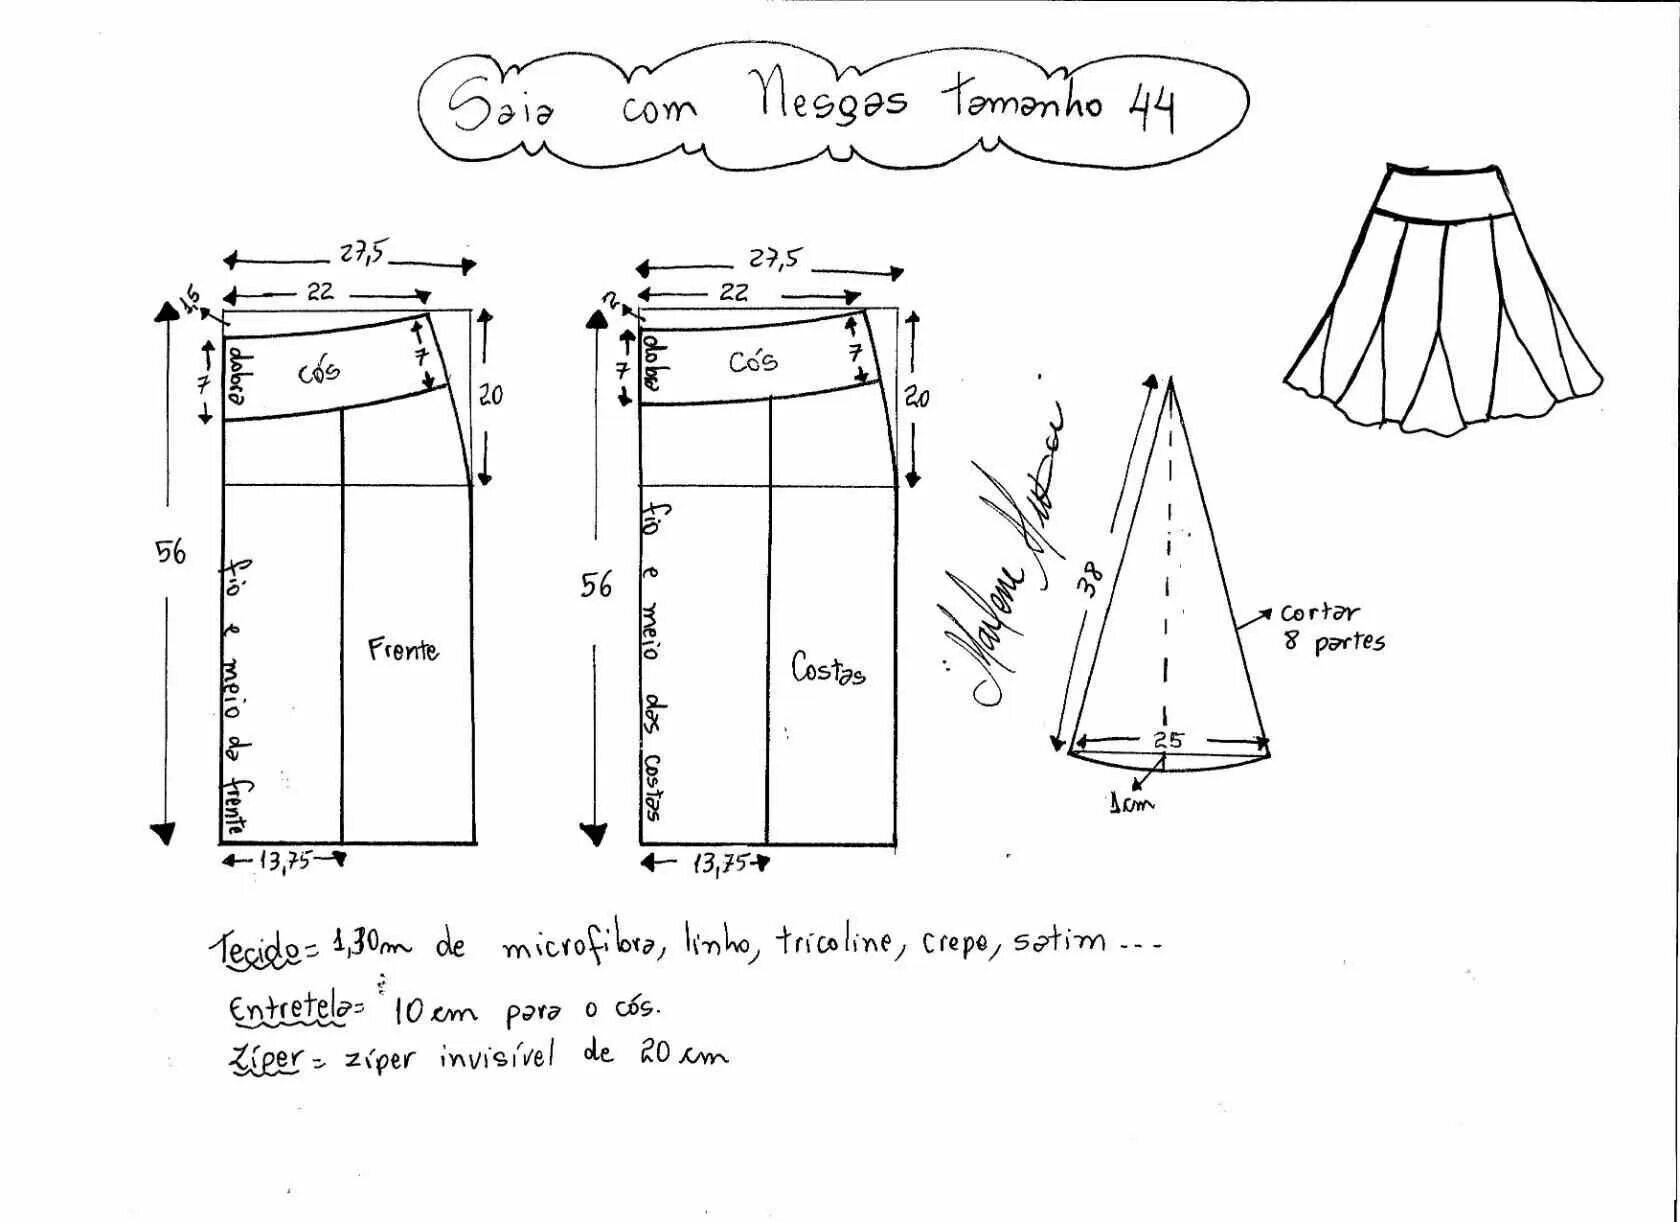 Saia com Nesgas tamanho 44
27,5
22
1,5
7
dobra
cós
7
20
56
fio e meio da frente
Frente
13,75
27,5
22
2
7
dobra
cós
7
20
56
fio e meio das costas
Costas
13,75
Marlene
38
25
1cm
cortar
8 partes
Tecido= 1,30m de microfibra, linho, tricoline, crepe, satim ...
Entretela= 10 cm para o cós.
Zíper = zíper invisível de 20 cm